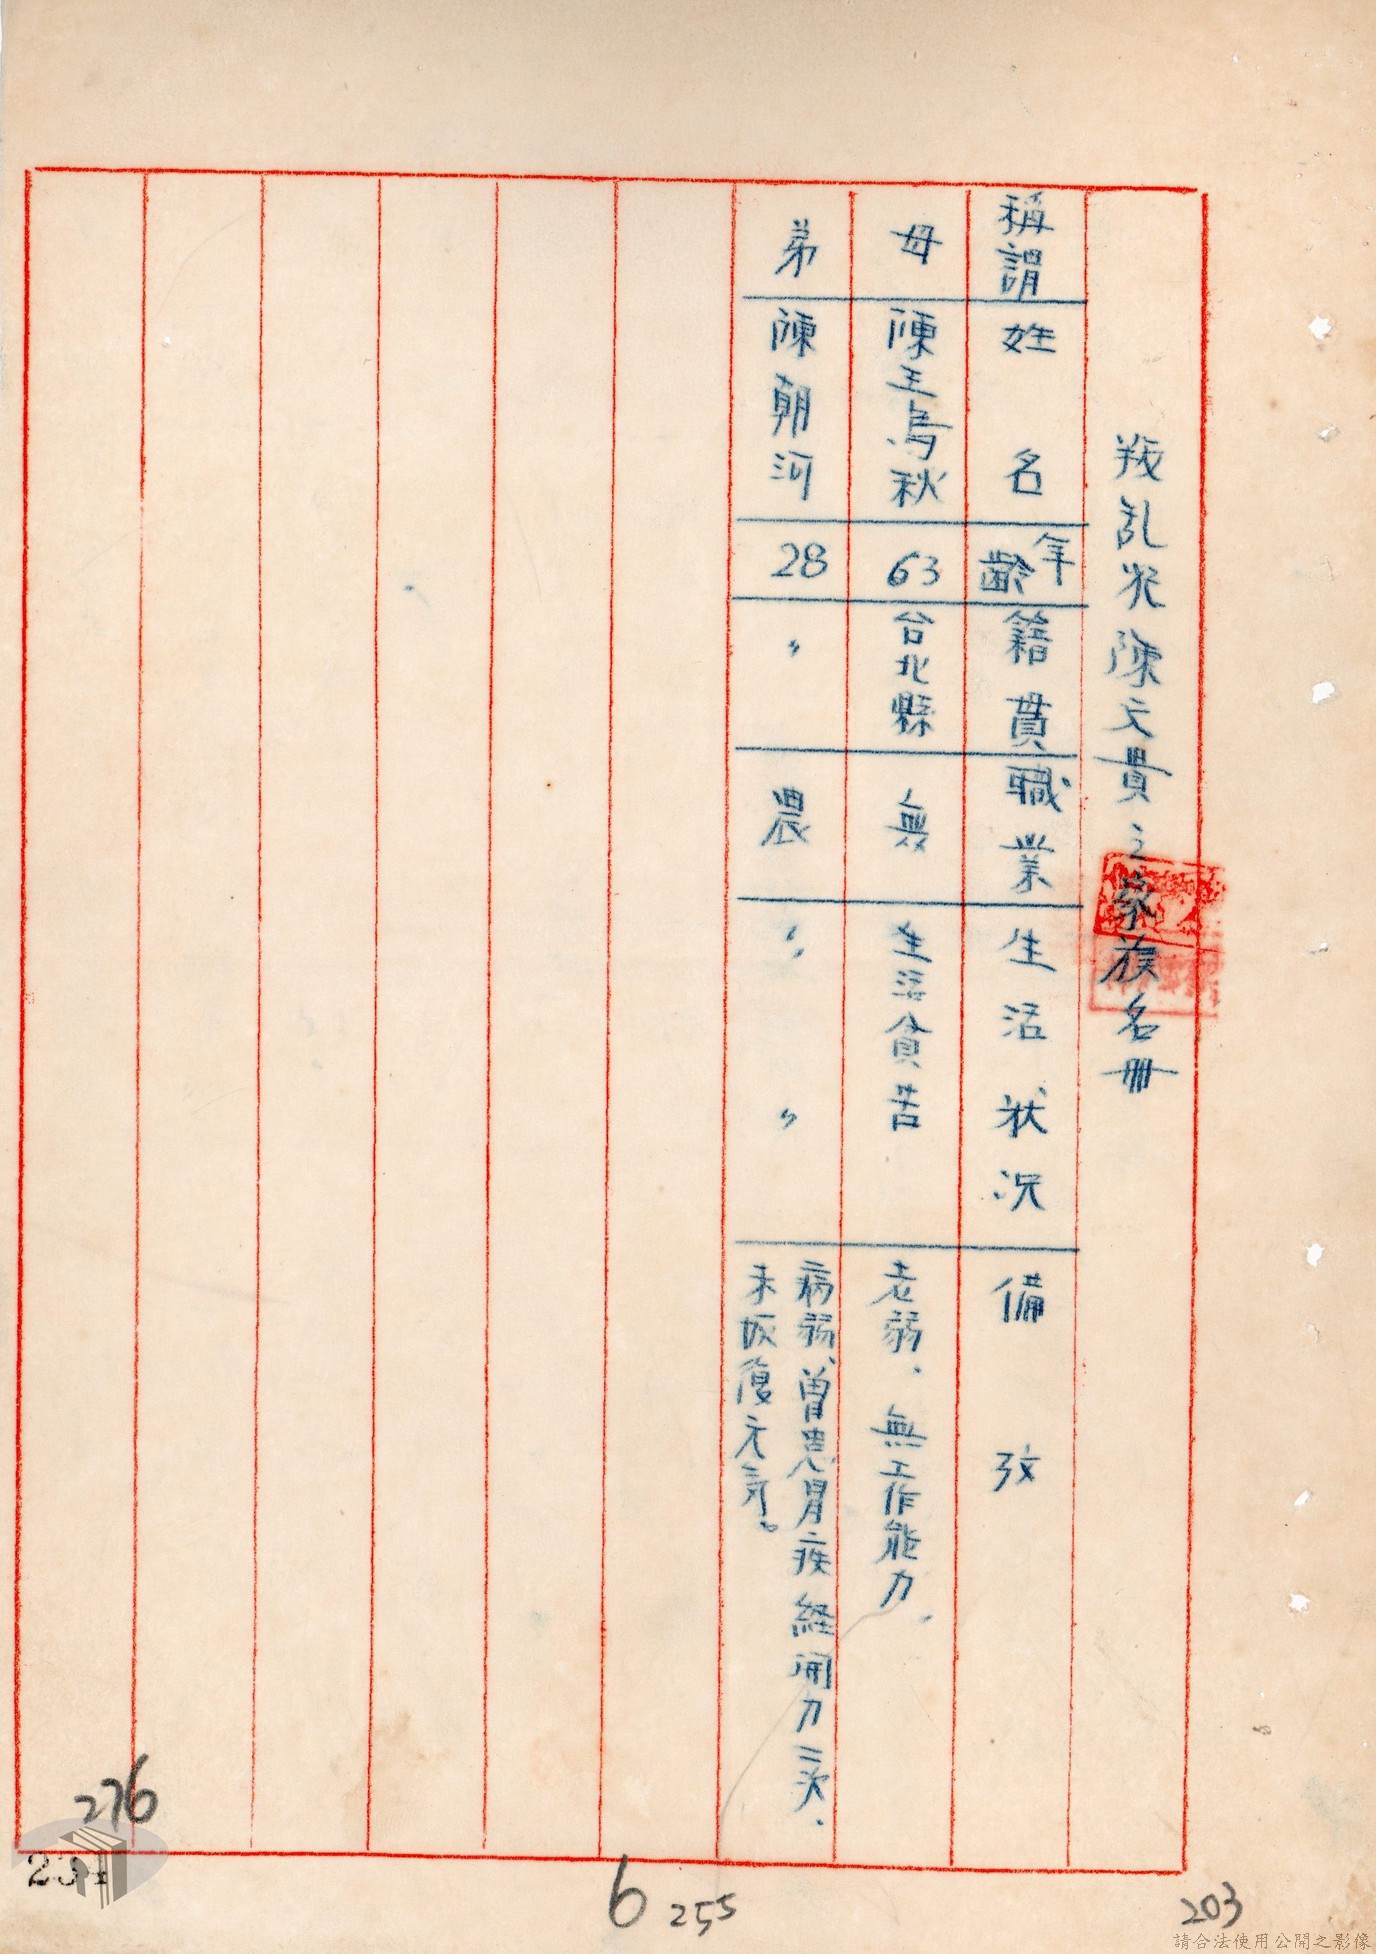 叛乱犯陳文貴之家族名册
稱謂 姓名 年齡 籍貫 職業 生活狀況 備攷
母 陳王烏秋 63 台北縣 無 生活貧苦 老弱、無工作能力、
弟 陳朝河 28 〃 農 〃 〃 病弱、曾患胃疾経開刀二次、
未恢復元気。
276
234
6
255
203
請合法使用公開之影像